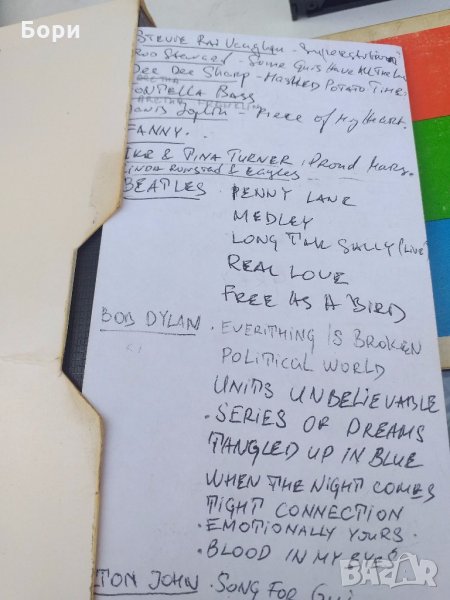 Бори
STEVIE RAY Vaughan - Superstition
ROD Steward - Some Guys Have All The Lu
DEE DEE SHARP - MASHED POTATO TIME
ARETHA
FONTELLA BASS
Janis Joplin - Piece of My Heart.
FANNY.
IKE & TINA TURNER. Proud Mary.
LINDA RONSTED & Eagles
BEATLES . PENNY LANE
MEDLEY
LONG TALL SALLY (LIVE)
REAL LOVE
FREE AS A BIRD
BOB DYLAN . EVERITHING IS BROKEN
POLITICAL WORLD
UNITS UNBELIEVABLE
. SERIES OF DREAMS
TANGLED UP IN BLUE
WHEN THE NIGHT COMES
TIGHT CONNECTION
. EMOTIONALLY YOURS.
. BLOOD IN MY EYES
TON JOHN . SONG FOR GUY
BAZAR